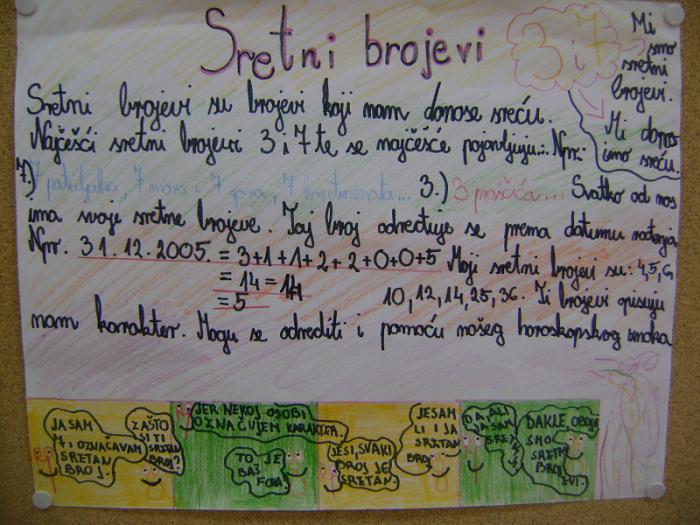 Sretni brojevi
3 i 7
Mi
smo
sretni
brojevi.
Mi donos
imo sreću.
Sretni brojevi su brojevi koji nam donose sreću.
Najčešći sretni brojevi 3 i 7 te se najčešće pojavljuju... Npr.:
7.) 7 patuljaka, 7 mora i 7 gora, 7 kontinenata... 3.) 3 praščića... Svatko od nas
ima svoje sretne brojeve. Taj broj određuje se prema datumu rođenja.
Npr. 31.12.2005. = 3+1+1+2+2+0+0+5 Moji sretni brojevi su: 4,5,6,
= 14 = 1+4 10, 12, 14, 25, 36. Ti brojevi opisuju
= 5
nam karakter. Mogu se odrediti i pomoću našeg horoskopskog znaka
JA SAM
7 I OZNAČAVAM
SRETAN
BROJ.
ZAŠTO
SI TI
SRETAN
BROJ?
JER NEKOJ OSOBI
OZNAČUJEM KARAKTER.
TO JE
BAŠ
FORA.
JESAM
LI I JA
SRETAN
BROJ
JESI, SVAKI
BROJ JE
SRETAN.
DA, ALI
JA SAM
DAKLE, OBOJE
SMO
SRETNI
BROJ
EVI.